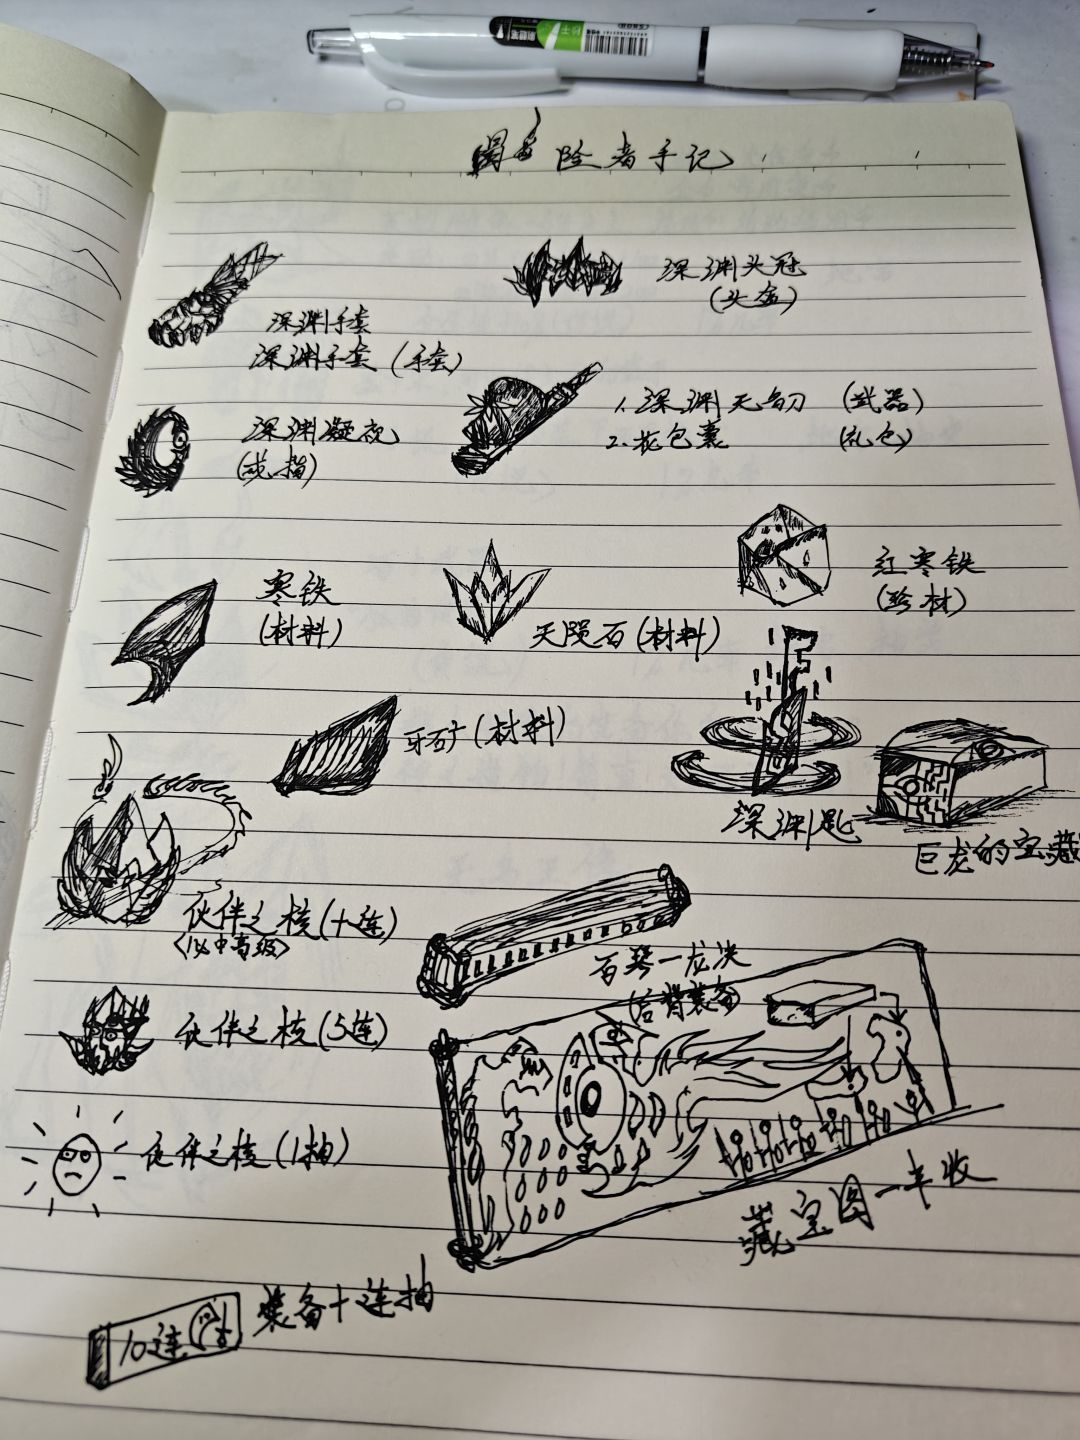 冒险者手记
深渊头冠
(头盔)
深渊手套
深渊手套(手套)
1.深渊无名刃 (武器)
2.花包裹 (礼包)
深渊凝视
(戒指)
寒铁
(材料)
天陨石(材料)
红寒铁
(珍材)
牙矿(材料)
深渊匙
巨龙的宝藏
伙伴之核(十连)
<必中高级>
百琴一龙决
(后背装备)
伙伴之核(5连)
伙伴之核(1抽)
藏宝图一丰收
10连
装备十连抽